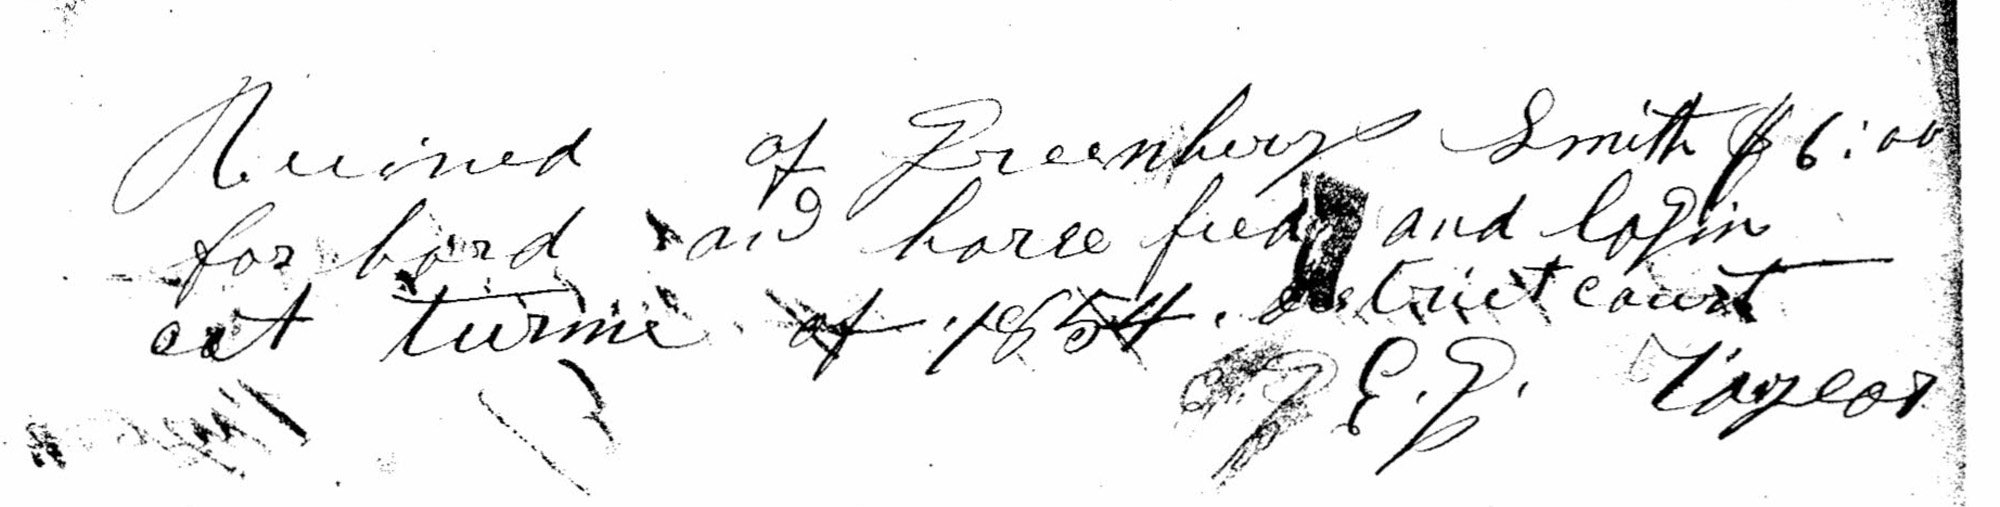 Received of Greenbery Smith $6:00
for bord and horse feed and login
at turme of 1854. destrict court
E. J. Taylor